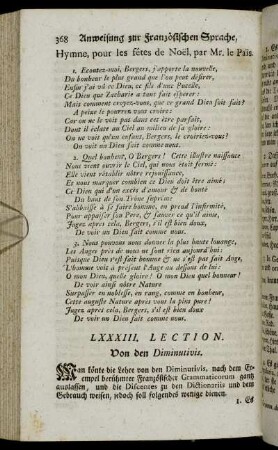 368 Anweisung zur Französischen Sprache,
Hymne, pour les fêtes de Noël, par Mr. le Païs.
1. Ecoutez-moi, Bergers, j'apporte la nouvelle,
Du bonheur le plus grand que l'on peut désirer,
Enfin j'ai vû ce Dieu, ce fils d'une Pucelle,
Ce Dieu que Zacharie a tant fait espérer:
Mais comment croyez-vous, que ce grand Dieu soit fait?
A peine le pourrez vous croire:
Car on ne le voit pas dans cet être parfait,
Dont il éclate au Ciel au milieu de sa gloire:
On ne voit qu'un enfant, Bergers, le croiriez-vous?
On voit un Dieu fait comme nous.
2. Quel bonheur, O Bergers! Cette illustre naissance
Nous vient ouvrir le Ciel, qui nous étoit fermé:
Elle vient rétablir nôtre
Et nous marquer combien ce Dieu doit être aimé:
Ce Dieu qui d'un excès d'amour & de bonté
Du haut de son Trône suprême
S'abbaisse à se faire homme, en prend l'infirmité,
Pour appaiser son Pere, & sauver ce qu'il aime,
Jugez après cela, Bergers, s'il est bien doux,
De voir un Dieu fait comme nous.
3. Nous pouvons nous donner la plus haute louange,
Les Anges près de nous ne sont rien aujourd'hui:
Puisque Dieu s'est fait homme & ne s'est pas fait Ange,
L'homme voit à présent l'Ange au dessous de lui:
O mon Dieu, quelle gloire! O mon Dieu quel bonheur!
De voir ainsi nôtre Nature
Surpasser en noblesse, en rang, comme en bonheur,
Cette auguste Nature après vous la plus pure!
Jugez après cela, Bergers, s'il est bien doux
De voir un Dieu fait comme nous.
LXXXIII. LECTION.
Von den Diminutivis.
Man könte die Lehre von den Diminutivis, nach dem Ex-
empel berühmter Französischer Grammaticorum gantz
auslassen, und die Discentes zu den Dictionariis und dem
Gebrauch weisen, jedoch soll folgendes wenige dienen.
1. Es